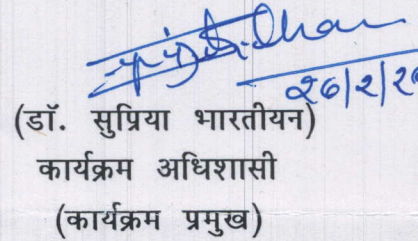 (डॉ. सुप्रिया भारतीयन)
कार्यक्रम अधिशासी
(कार्यक्रम प्रमुख)